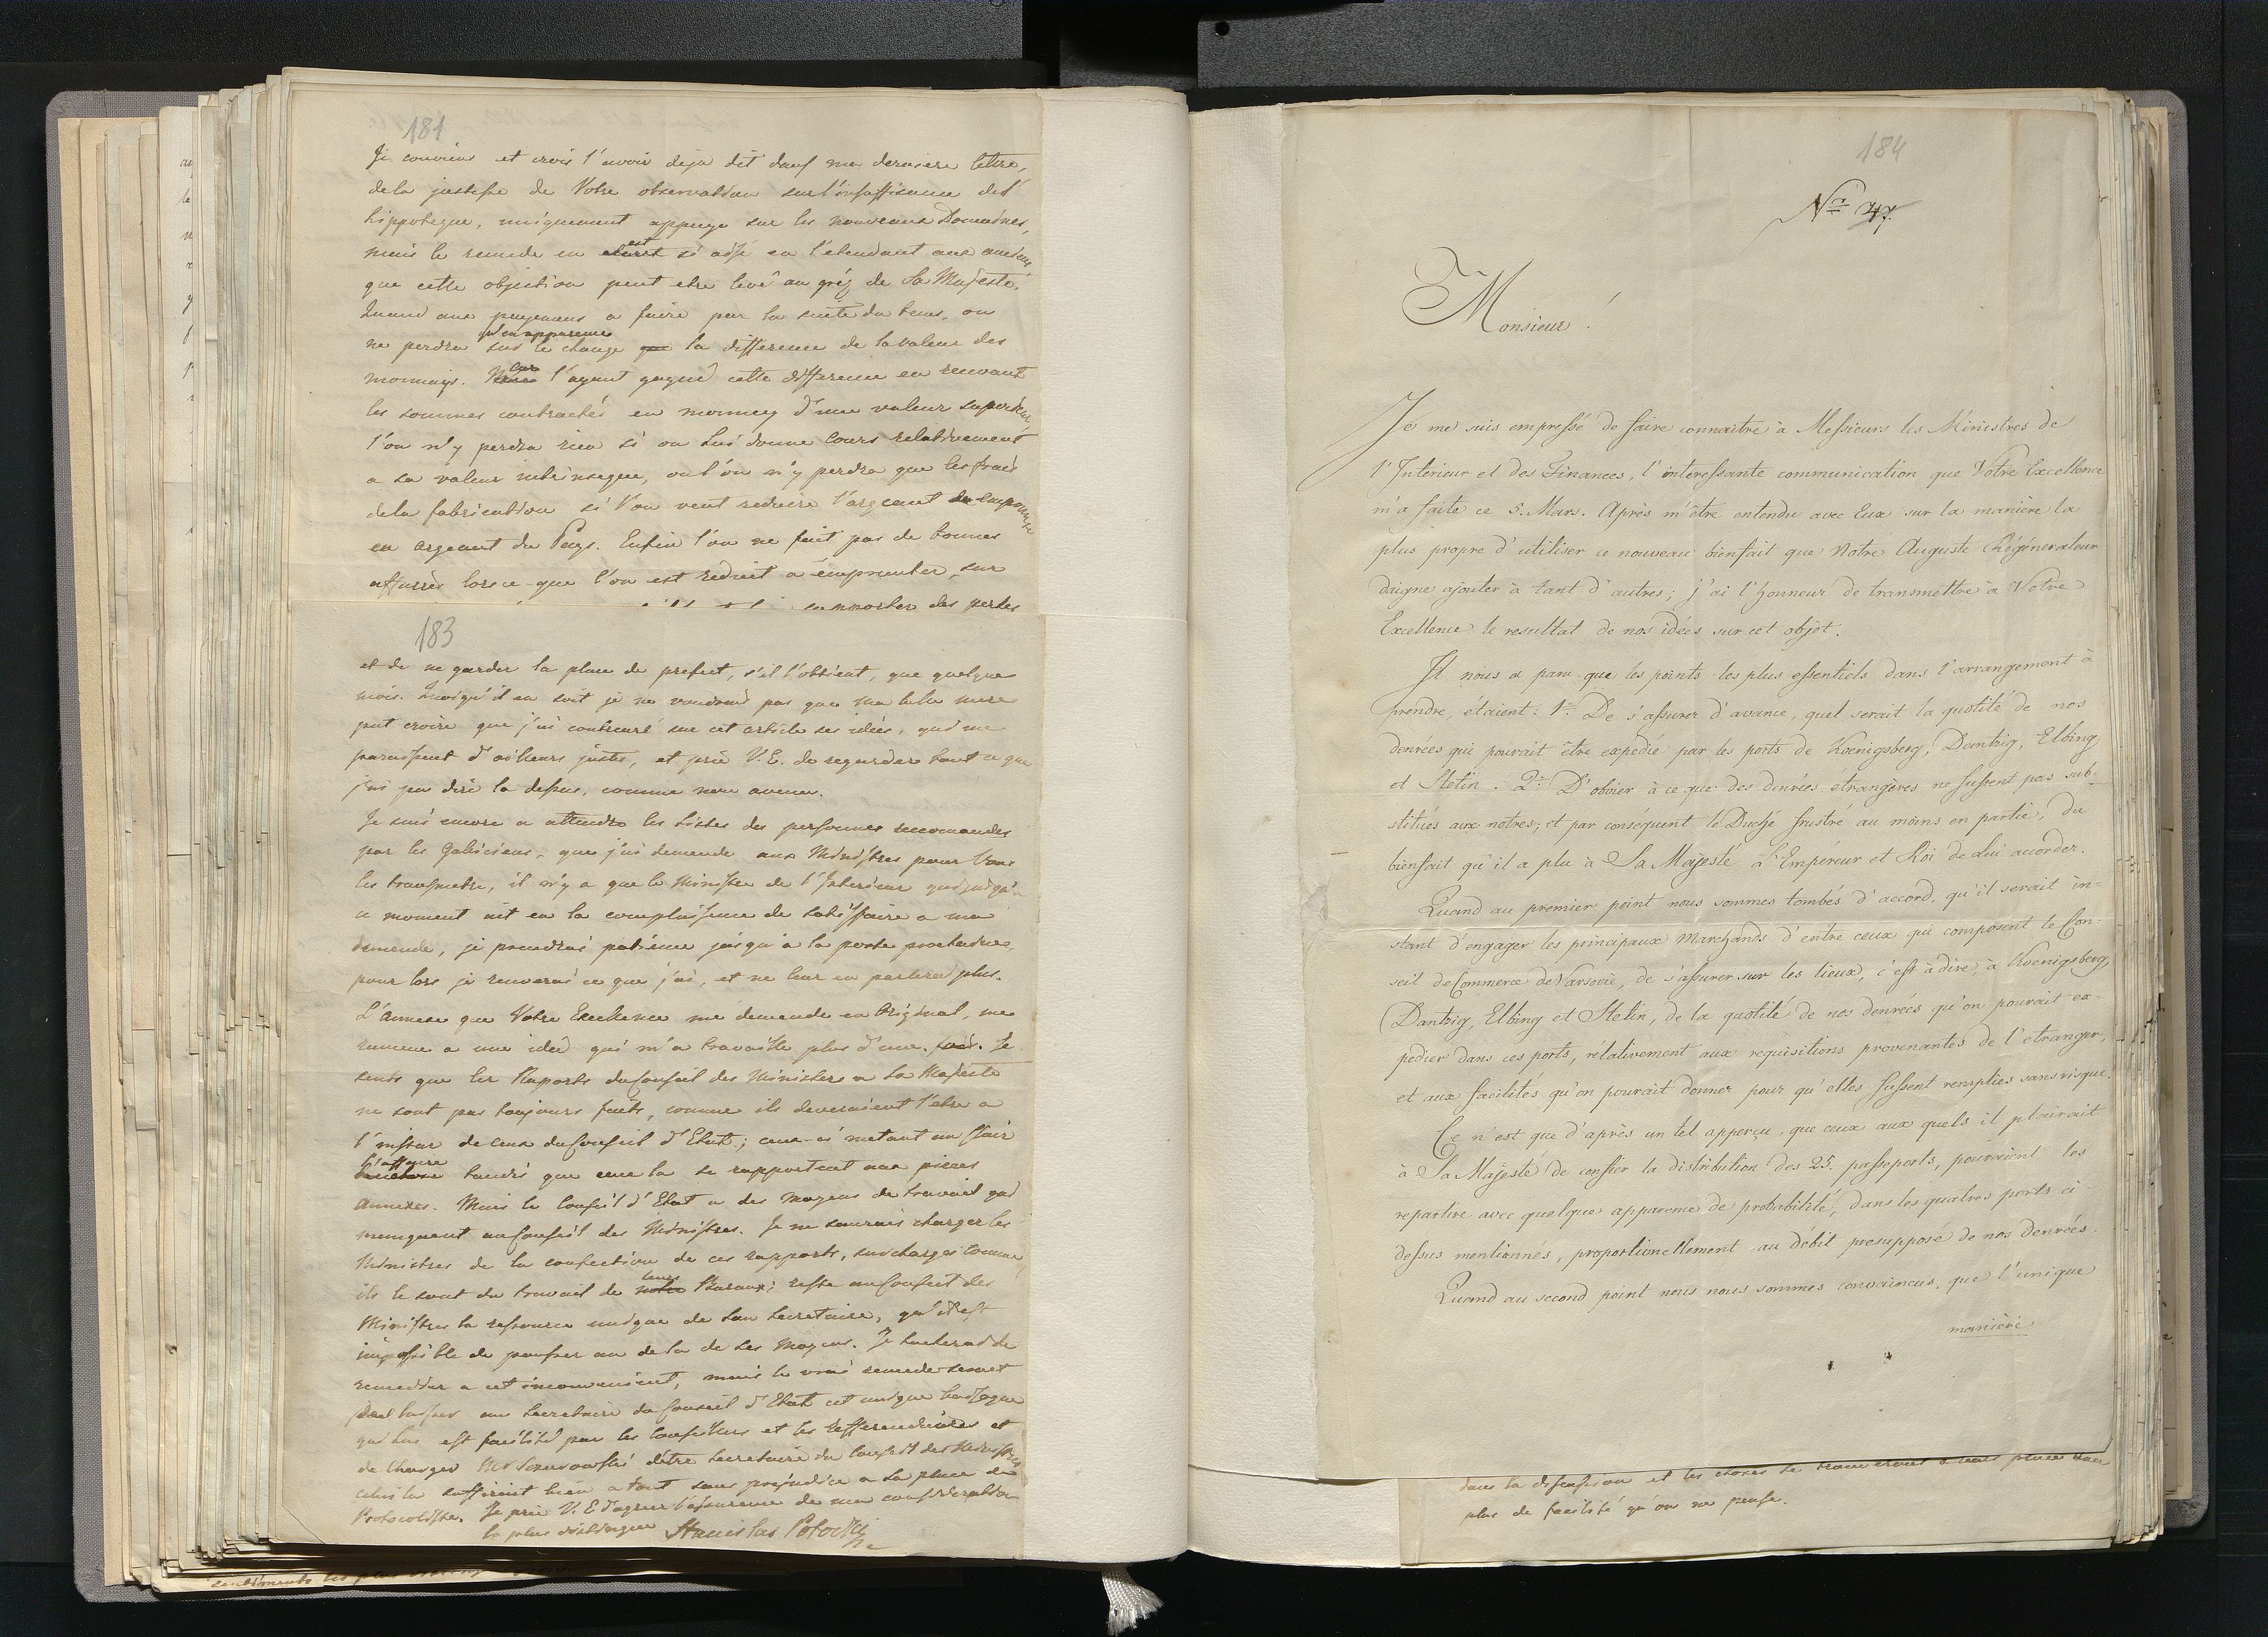 181
Je conviens et crois l'avoir deja dit dans ma derniere lettre,
de la justesse de Votre observation sur l'insuffisance del'
hippoteque, uniquement appuye sur les nouveaux Domaines,
mais le remede en est si aisé en l'etendant aux anciens
que cette objection peut etre levé au gréz de Sa Majesté.
Quand aux payemens a faire par la suite du tems, on
ne perdra qu'en apparence
sur le change la difference de la valeur des
monnays. Car l'ayant gagné cette difference en recevant
les sommes contractés en monney d'une valeur superieure
l'on n'y perdra rien si on lui donne cours relativement
a sa valeur intrinseque, ou l'on n'y perdra que les frais
dela fabrication si l'on veut reduire l'argeant
en argeant du Pays. Enfin l'on ne fait pas de bonnes
affaires lorsce que l'on est reduit a emprunter, sur
supporter des pertes
183
et de ne garder la place de prefect, s'il l'obtient, que quelque
mois. Quoiqu'il en soit je ne voudrois pas que ma belle mere
put croire que j'ai contrecaré sur cet article ses idées, qui me
paraissent d'ailleurs justes, et prie V. E. de regarder tout ce que
j'ai pu dire la dessus, comme non avenu.
Je suis encore a attendre les Listes des personnes recomandés
par les Galiciens, que j'ai demandé aux Ministres pour Vous
les transmetre, il n'y a que le Ministre de l'Interieur qui jusqu'a
ce moment ait eu la complaisance de satisfaire a ma
demande, je prendrai patience jusqu'a la poste prochaine
pour lors je renverai ce que j'ai, et ne leur en parlerai plus.
L'annexe que Votre Excellence me demande en Original, me
ramene a une idée qui m'a travaillé plus d'une fois. Je
sents que les Raports du Conseil des Ministres a Sa Majesté
ne sont pas toujours faits, comme ils deveraient l'etre a
l'instar de ceux du Conseil d'Etat; ceux-ci metant au clair
l'affaire
tandis que ceux la se rapportent aux pieces
annexes. Mais le Conseil d'Etat a des moyens de travail qui
manquent au Conseil des Ministres. Je ne saurais charger les
Ministres de la confection de ces rapports, surchargés comme
ils le sont du travail de leurs Bureaux; reste au Conseil des
Ministres la ressource unique de son Secretaire, qu'il est
impossible de pousser au dela de ses moyens. Je tacherai de
remedier a cet inconvenient, mais le vrai remede serait
de laisser au Secretaire du Conseil d'Etat cet unique
qui lui est facilité par les Conseillers et les Refferendaires et
de charger Mr d'être Secretaire du Conseil des Ministres
celui la suffirait bien a tout sans prejudice a sa place de
Protocoliste. Je prie V. E. d'agreer l'assurance de ma consideration
la plus distinguée Stanislas Potocki
184
Nro 47.
Monsieur!
Je me suis empressé de faire connaitre à Messieurs les Ministres de
l'Interieur et des Finances, l'interessante communication que Votre Excellence
m'a faite ce 5. Mars. Après m'être entendu avec Eux sur la manière la
plus propre d'utiliser ce nouveau bienfait que Notre Auguste Régénerateur
daigne ajouter à tant d'autres; j'ai l'honneur de transmettre à Votre
Excellence le resultat de nos idées sur cet objet.
Il nous a paru que les points les plus essentiels dans l'arrangement à
prendre, étaient: 1º. De s'assurer d'avance, quel serait la quotité de nos
denrées qui pourait être expedié par les ports de Koenigsberg, Dantzig, Elbing
et Stetin. 2º. D'obvier à ce que des denrées étrangères ne fussent pas sub-
stitués aux notres, et par conséquent le Duché frustré au moins en partie, du
bienfait qu'il a plu à Sa Majesté L'Empéreur et Roi de Lui accorder.
Quand au premier point nous sommes tombés d'accord, qu'il serait in-
stant d'engager les principaux Marchands d'entre ceux qui composent le Con-
seil de Commerce de Varsovie, de s'assurer sur les lieux, c'est à dire, à Koenigsberg,
Dantzig, Elbing et Stetin, de la quotité de nos denrées qu'on pourait ex-
pedier dans ces ports, rélativement aux requisitions provenantes de l'etranger,
et aux facilités qu'on pourait donner pour qu'elles fussent remplies sans risque.
Ce n'est que d'après un tel apperçu, que ceux aux quels il plairait
à Sa Majesté de confier la distribution des 25. passeports, pouraient les
repartire avec quelque apparence de probabilité, dans les quatres ports ci-
dessus mentionnés, proportionellement au débit presupposé de nos denrées.
Quand au second point nous nous sommes convaincus, que l'unique
manière
dans la discussion et les choses se trouveront a leur place avec
plus de facilité qu'on ne pense.